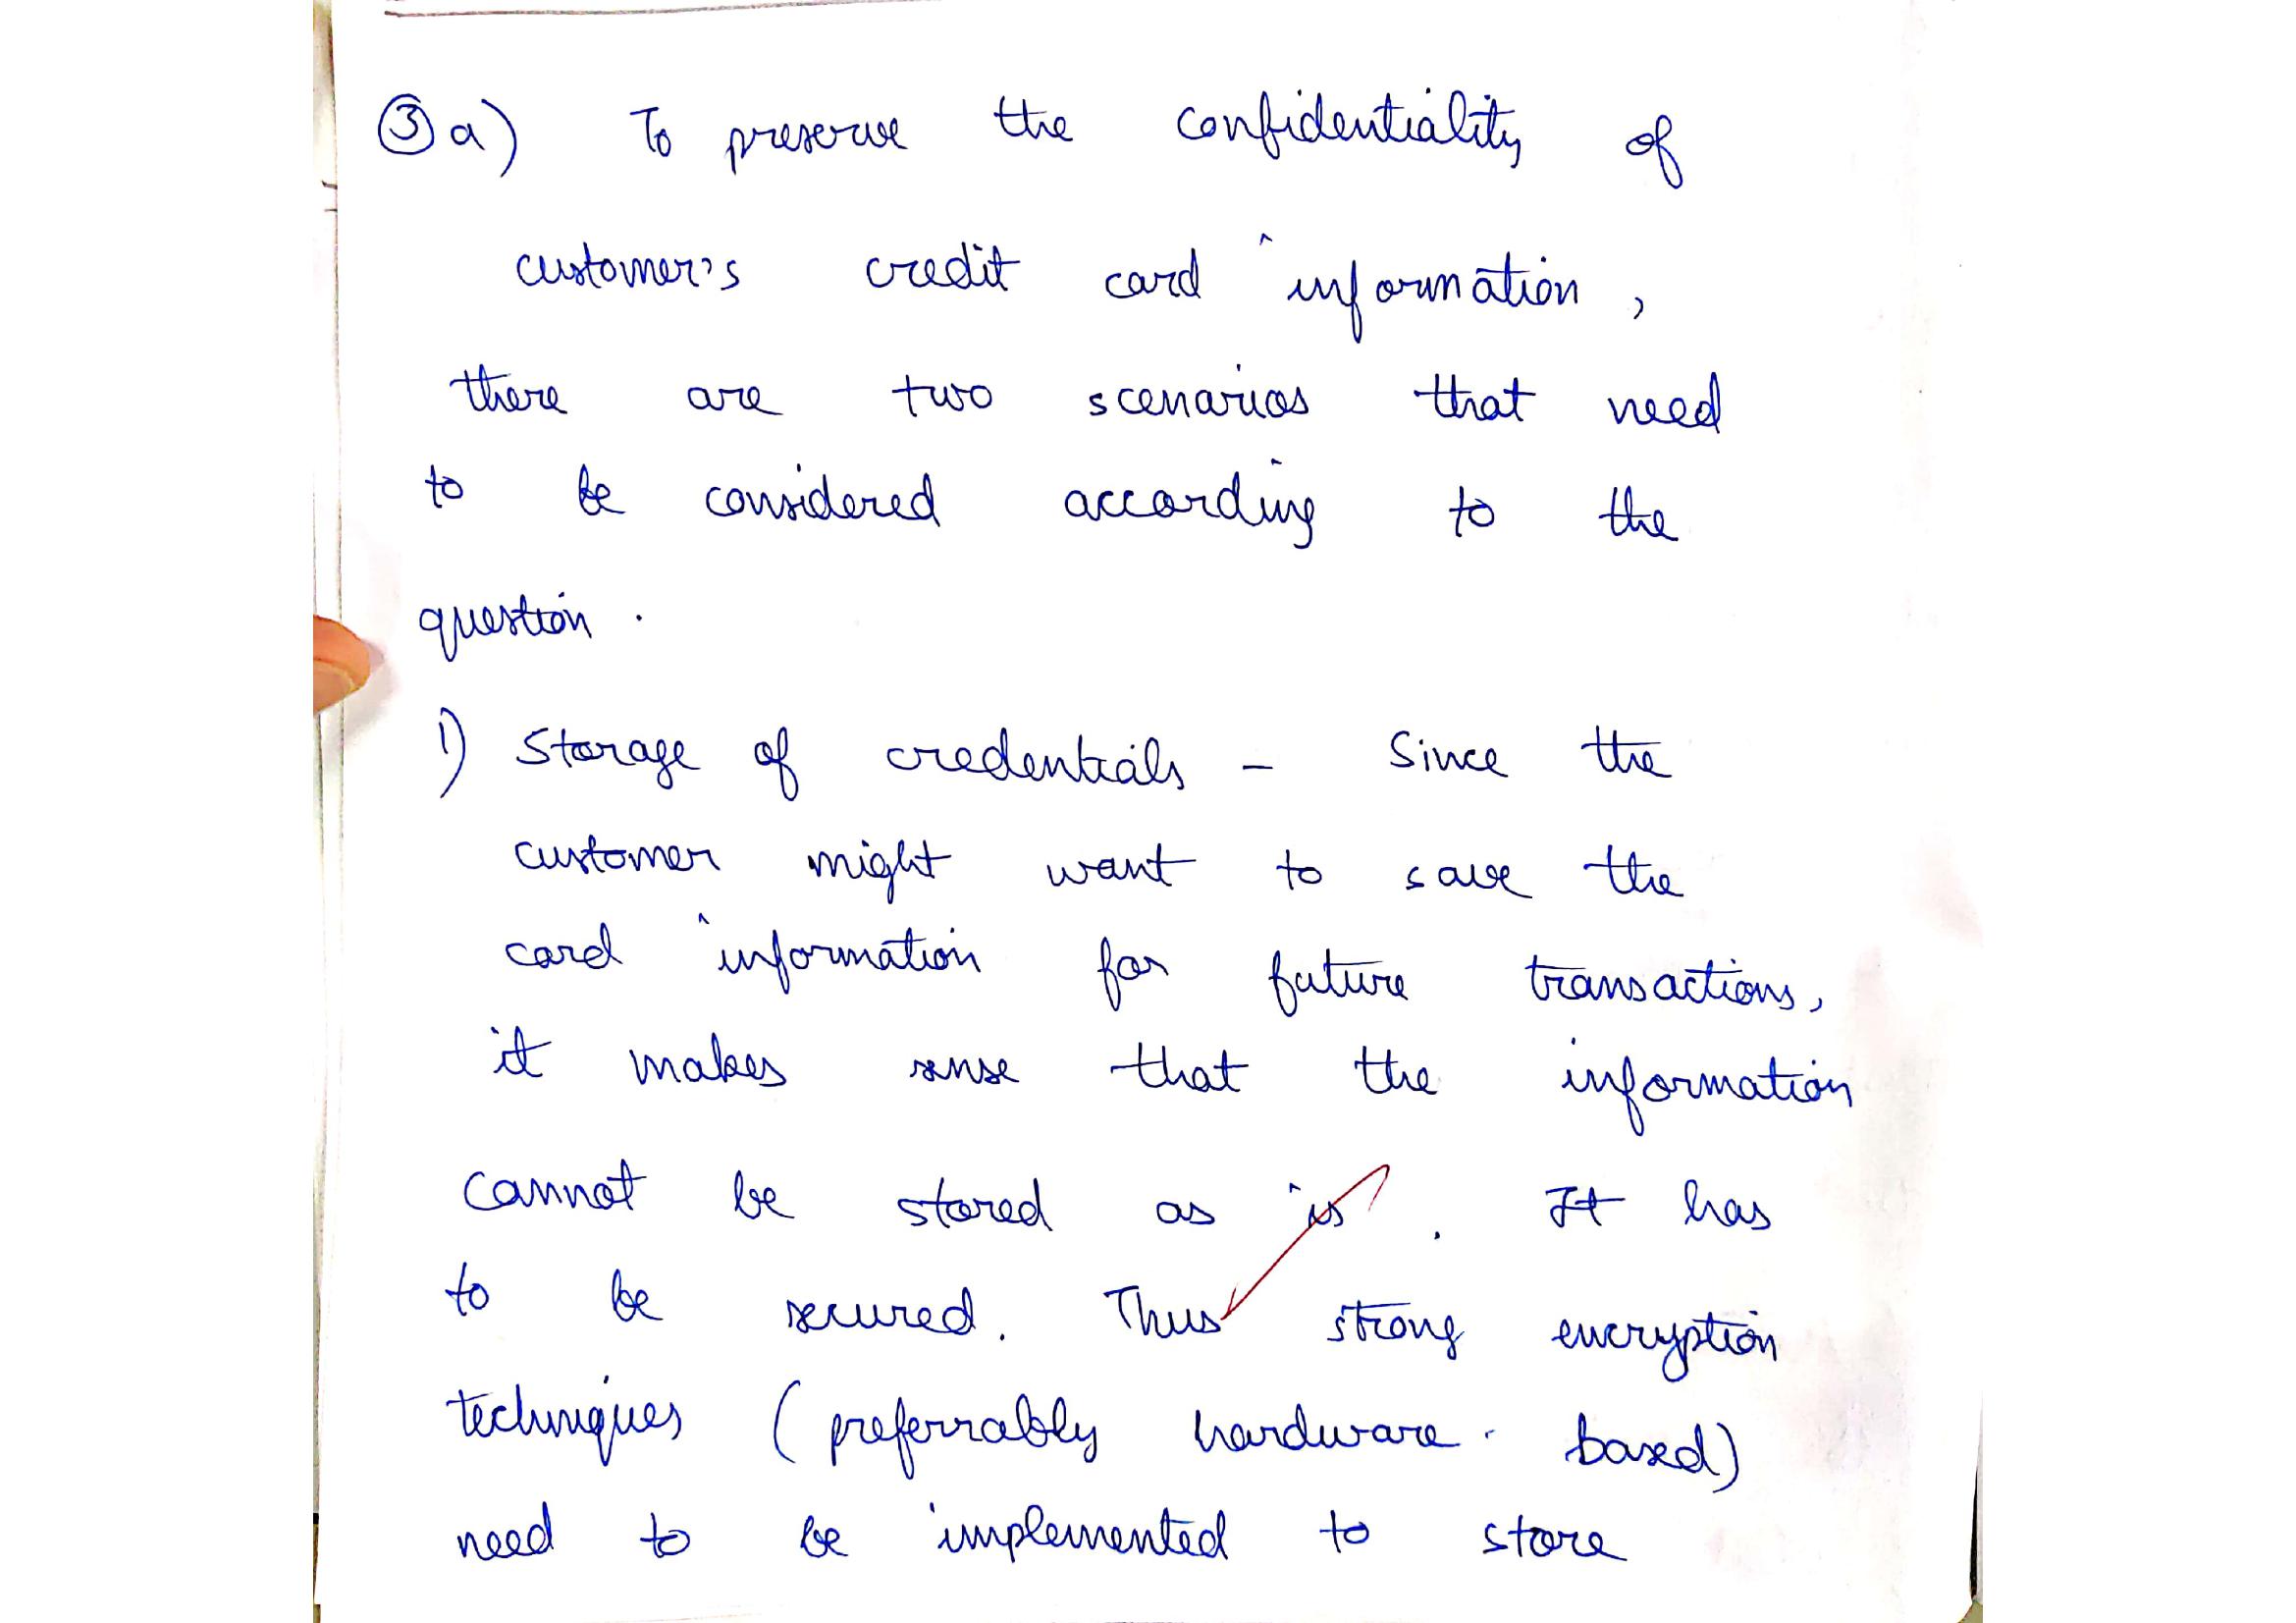 ③ a) To preserve the confidentiality of
customer's credit card information,
there are two scenarios that need
to be considered according to the
question.
1) Storage of credentials - Since the
customer might want to save the
card information for future transactions,
it makes sense that the information
cannot be stored as is. It has
to be secured. Thus strong encryption
techniques (preferrably hardware-based)
need to be implemented to store